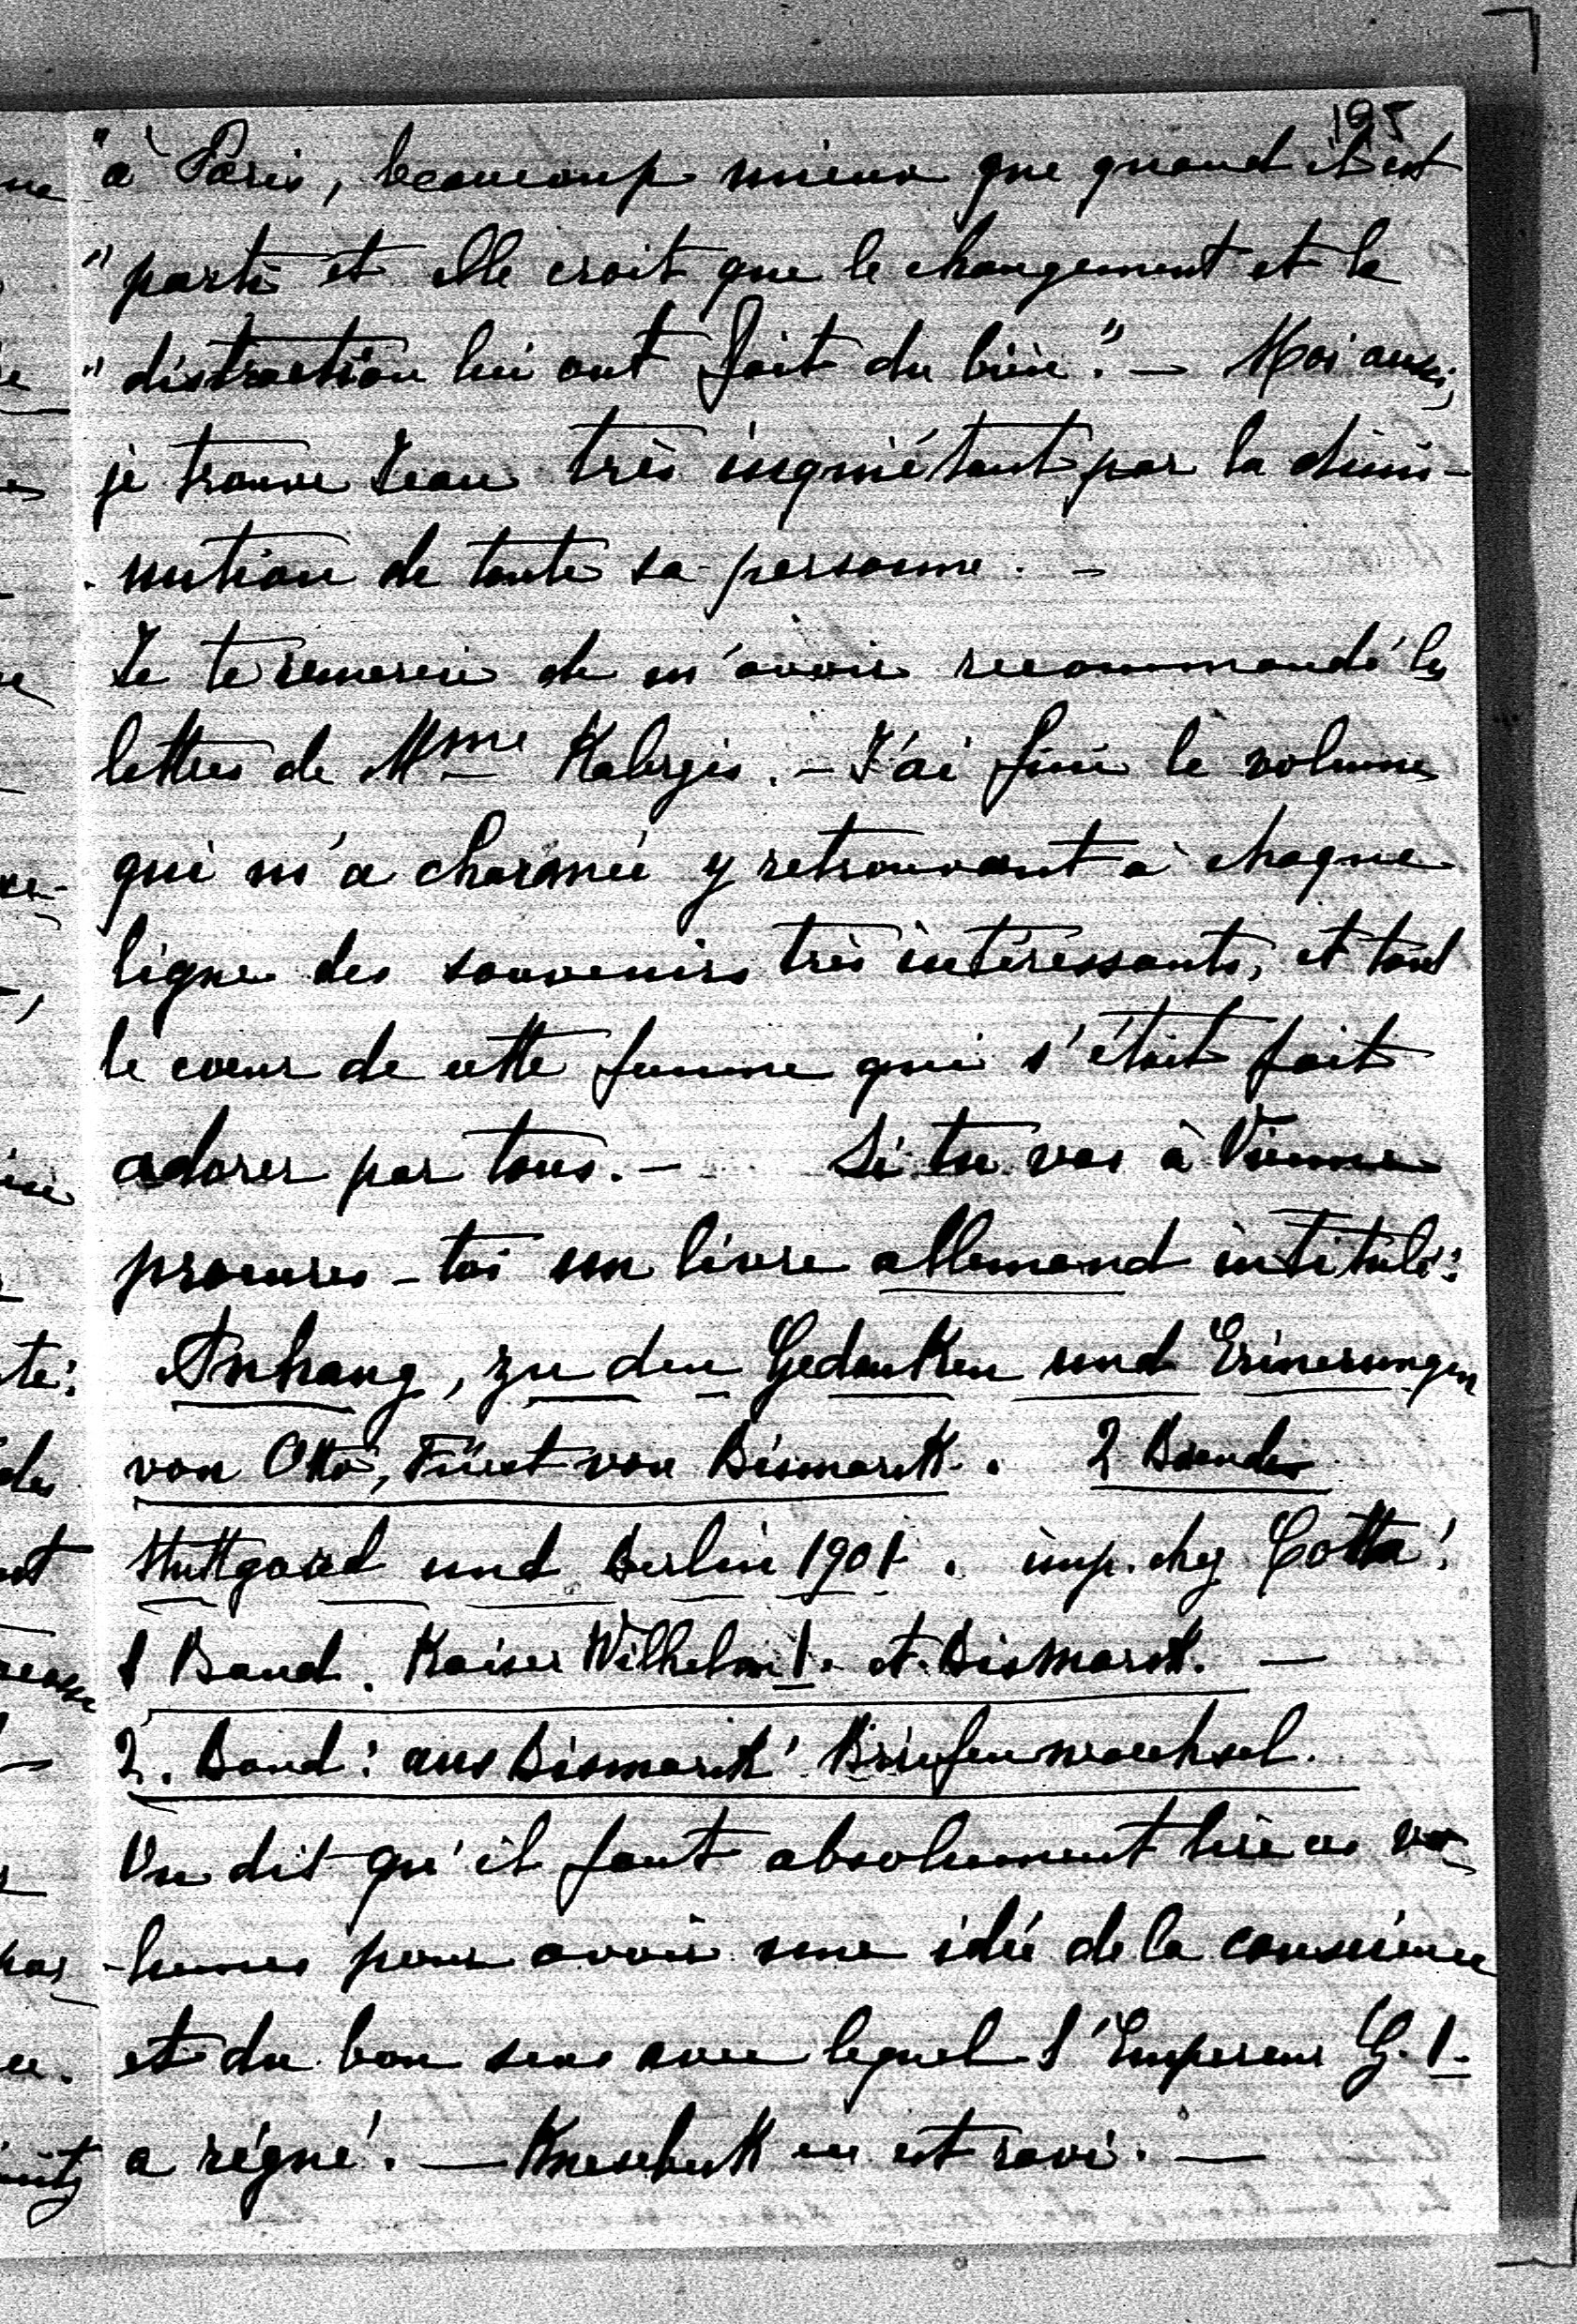 195
"à Paris, beaucoup mieux que quand il est
"parti et elle croit que le changement et la
"distraction lui ont fait du bien". — Moi aussi,
je trouve Jean très inquiétant par la dimi-
-nution de toute sa personne. —
Je te remercie de m'avoir recommandé les
lettres de Mme Kalergis. — J'ai fini le volume
qui m'a charmée y retrouvant à chaque
ligne des souvenirs très intéressants, et tout
le coeur de cette femme qui s'était fait
adorer par tous. — Si tu vas à Vienne
procures-toi un livre allemand intitulé:
Anhang, zu den Gedanken und Erinerungen
von Otto, Fürst von Bismarck. 2 Baende
Stuttgard und Berlin 1901. imp. chez Cotta!
1 Band. Kaiser Wilhelm I. et Bismarck. —
2. Band: aus Bismarck' Briefenwechsel.
On dit qu'il faut absolument lire ces vo-
-lumes pour avoir une idée de la conscience
et du bon sens avec lequel l'Empereur G. I.
a régné. — Knesebeck en est ravi. —